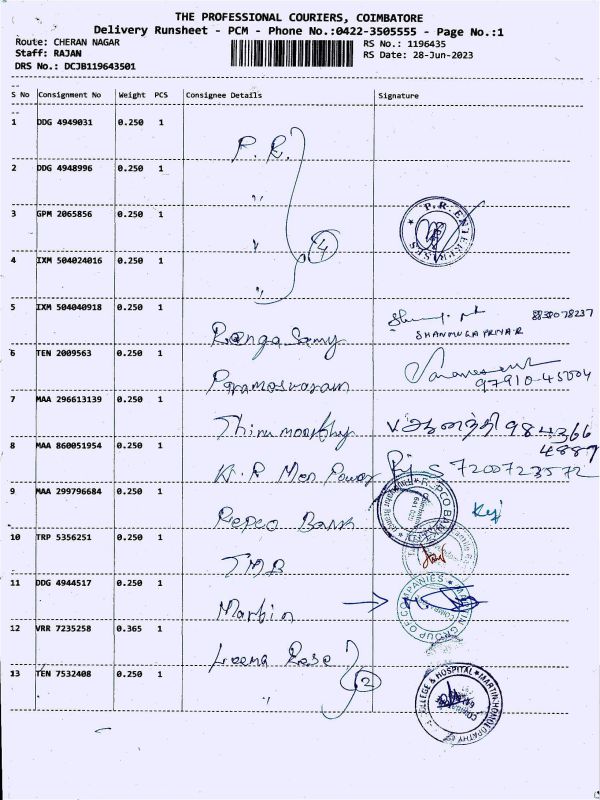 THE PROFESSIONAL COURIERS, COIMBATORE
Delivery Runsheet - PCM - Phone No.:0422-3505555 - Page No.:1
Route: CHERAN NAGAR RS No.: 1196435
Staff: RAJAN RS Date: 28-Jun-2023
DRS No.: DCJB119643501
S No Consignment No Weight PCS Consignee Details Signature
1 DDG 4949031 0.250 1 P.R.
2 DDG 4948996 0.250 1 "
3 GPM 2065856 0.250 1 " P.R. ENTERPRISES
4 IXM 504024016 0.250 1 " 4
5 IXM 504040918 0.250 1 Ranga Samy SHANMUGAPRIYA R
6 TEN 2009563 0.250 1 97910-45004
7 MAA 296613139 0.250 1 Thirumoorthy 984366
4887
8 MAA 860051954 0.250 1 K.R Men Power 7200723572
9 MAA 299796684 0.250 1 Repco Bank REPCO BANK
10 TRP 5356251 0.250 1 TMB
11 DDG 4944517 0.250 1 Martin MARTIN GROUP OF COMPANIES
12 VRR 7235258 0.365 1 Leema Rose
13 TEN 7532408 0.250 1 " 2 COLLEGE & HOSPITAL MARTIN HOMOEOPATHY